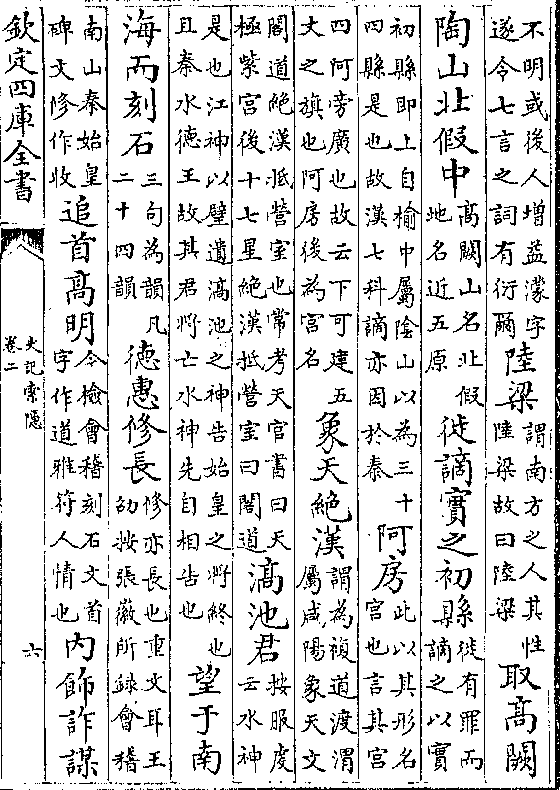 不明或後人増益濛字
遂令七言之詞有衍爾
陸梁
謂南方之人其性
陸梁故曰陸梁
取髙闕
陶山北假中
髙闕山名北假
地名近五原
徙謫實之初縣
徙有罪而
謫之以實
初縣即上自榆中屬隂山以為三十
四縣是也故漢七科謫亦因於秦
阿房
此以其形名
宫也言其宫
四阿旁廣也故云下可建五
丈之旗也阿房後為宫名
象天絶漢
謂為複道渡渭
屬咸陽象天文
閣道絶漢抵營室也常考天官書曰天
極紫宫後十七星絶漢抵營室曰閣道
滈池君
按服虔
云水神
是也江神以璧遺滈池之神告始皇之將終也
且秦水德王故其君將亡水神先自相告也
望于南
海而刻石
三句為韻凡
二十四韻
德惠修長
修亦長也重文耳王
劭按張徽所録會稽
南山秦始皇
碑文修作收
追首髙明
今檢會稽刻石文首
字作道雅符人情也
内飾詐謀
欽定四庫全書
史記索隱
卷二
六